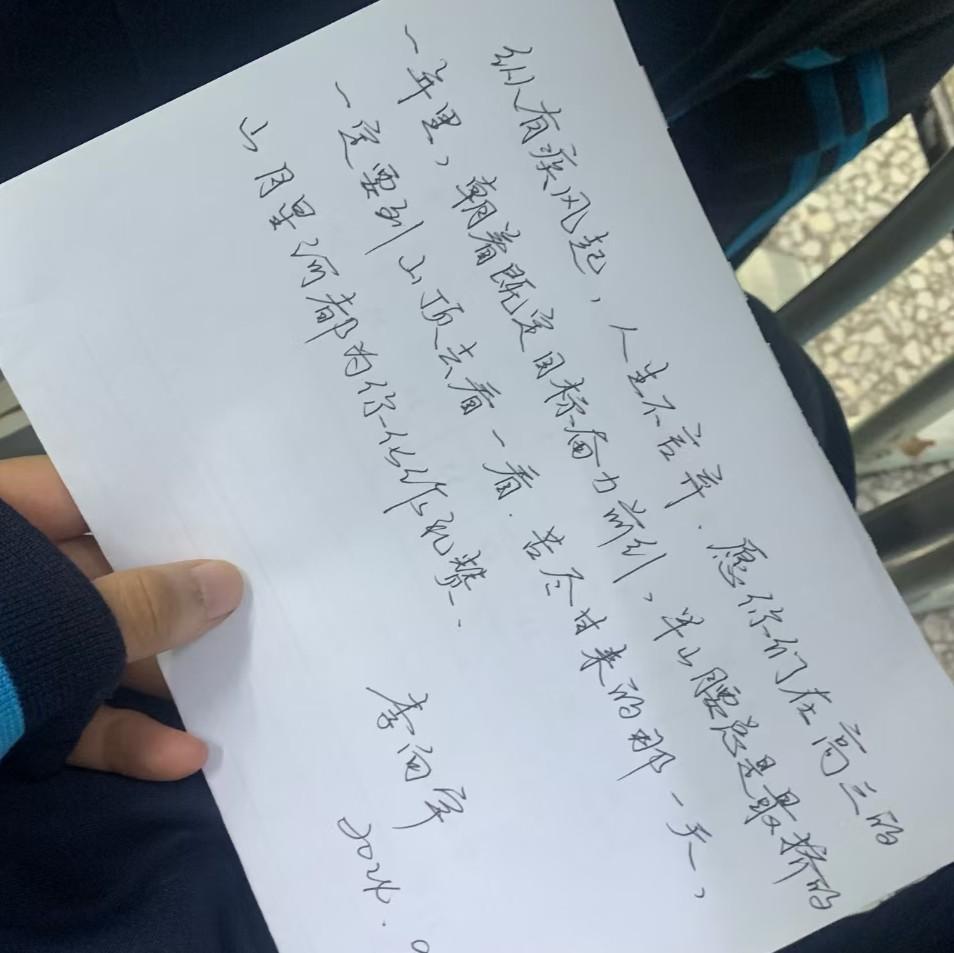 纵有疾风起，人生不言弃．愿你们在高三的
一年里，朝着既定目标奋力前行，半山腰总是最挤的
一定要到山顶去看一看．苦尽甘来的那一天，
山月星河都为你化作礼赞．
2024.0